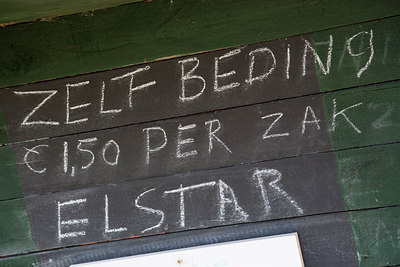 ZELF BEDING
€1,50 PER ZAK
ELSTAR